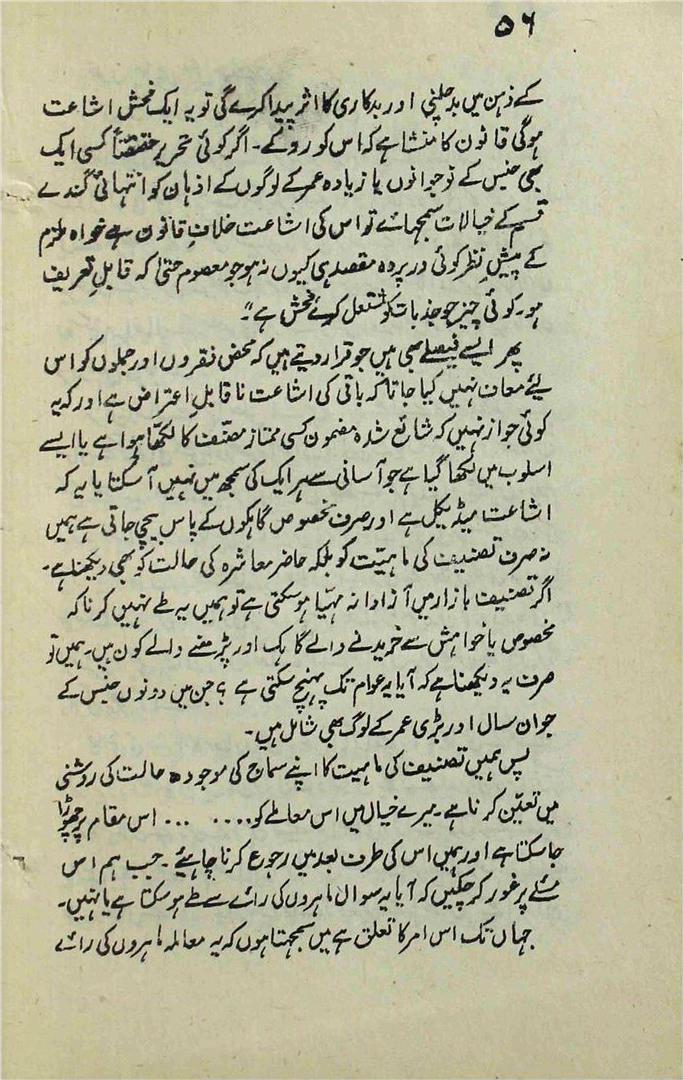 ۵۶
کے ذہن میں بدچلنی اور بدکاری کا اثر پیدا کرے گی تو یہ ایک فحش اشاعت
ہوگی قانون کا منشا ہے کہ اس کو روکے۔ اگر کوئی تحریر حقیقتاً کسی ایک
بھی جنس کے نوجوانوں یا زیادہ عمر کے لوگوں کے اذہان کو انتہائی گندے
قسم کے خیالات سمجھائے تو اس کی اشاعت خلافِ قانون ہے خواہ ملزم
کے پیشِ نظر کوئی درپردہ مقصد ہی کیوں نہ ہو جو معصوم حتیٰ کہ قابلِ تعریف
ہو۔ کوئی چیز جو جذبات کو مشتعل کرے فحش ہے"۔
پھر ایسے فیصلے بھی ہیں جو قرار دیتے ہیں کہ محض فقروں اور جملوں کو اس
لئے معاف نہیں کیا جاتا کہ باقی کی اشاعت ناقابلِ اعتراض ہے اور کہ یہ
کوئی جواز نہیں کہ شائع شدہ مضمون کسی ممتاز مصنّف کا لکھّا ہوا ہے یا ایسے
اسلوب میں لکھا گیا ہے جو آسانی سے ہر ایک کی سمجھ میں نہیں آ سکتا یا یہ کہ
اشاعت میڈیکل ہے اور صرف مخصوص گاہکوں کے پاس بیچی جاتی ہے ہمیں
نہ صرف تصنیف کی ماہیّت کو بلکہ حاضر معاشرہ کی حالت کو بھی دیکھنا ہے۔
اگر تصنیف بازار میں آزادانہ مہیّا ہوسکتی ہے تو ہمیں یہ طے نہیں کرنا کہ
مخصوص یا خواہش سے خریدنے والے گاہک اور پڑھنے والے کون ہیں۔ ہمیں تو
صرف یہ دیکھنا ہے کہ آیا یہ عوام تک پہنچ سکتی ہے؟ جن میں دونوں جنس کے
جوان سال اور بڑی عمر کے لوگ بھی شامل ہیں۔
پس ہمیں تصنیف کی ماہیت کا اپنے سماج کی موجودہ حالت کی روشنی
میں تعیّن کرنا ہے۔ میرے خیال میں اس معاملے کو.... ... اس مقام پر چھوڑا
جا سکتا ہے اور ہمیں اس کی طرف بعد میں رجوع کرنا چاہئیے۔ جب ہم اس
مسئلے پر غور کر چکیں کہ آیا یہ سوال ماہروں کی رائے سے طے ہوسکتا ہے یا نہیں۔
جہاں تک اس امر کا تعلق ہے میں سمجھتا ہوں کہ یہ معاملہ ماہروں کی رائے